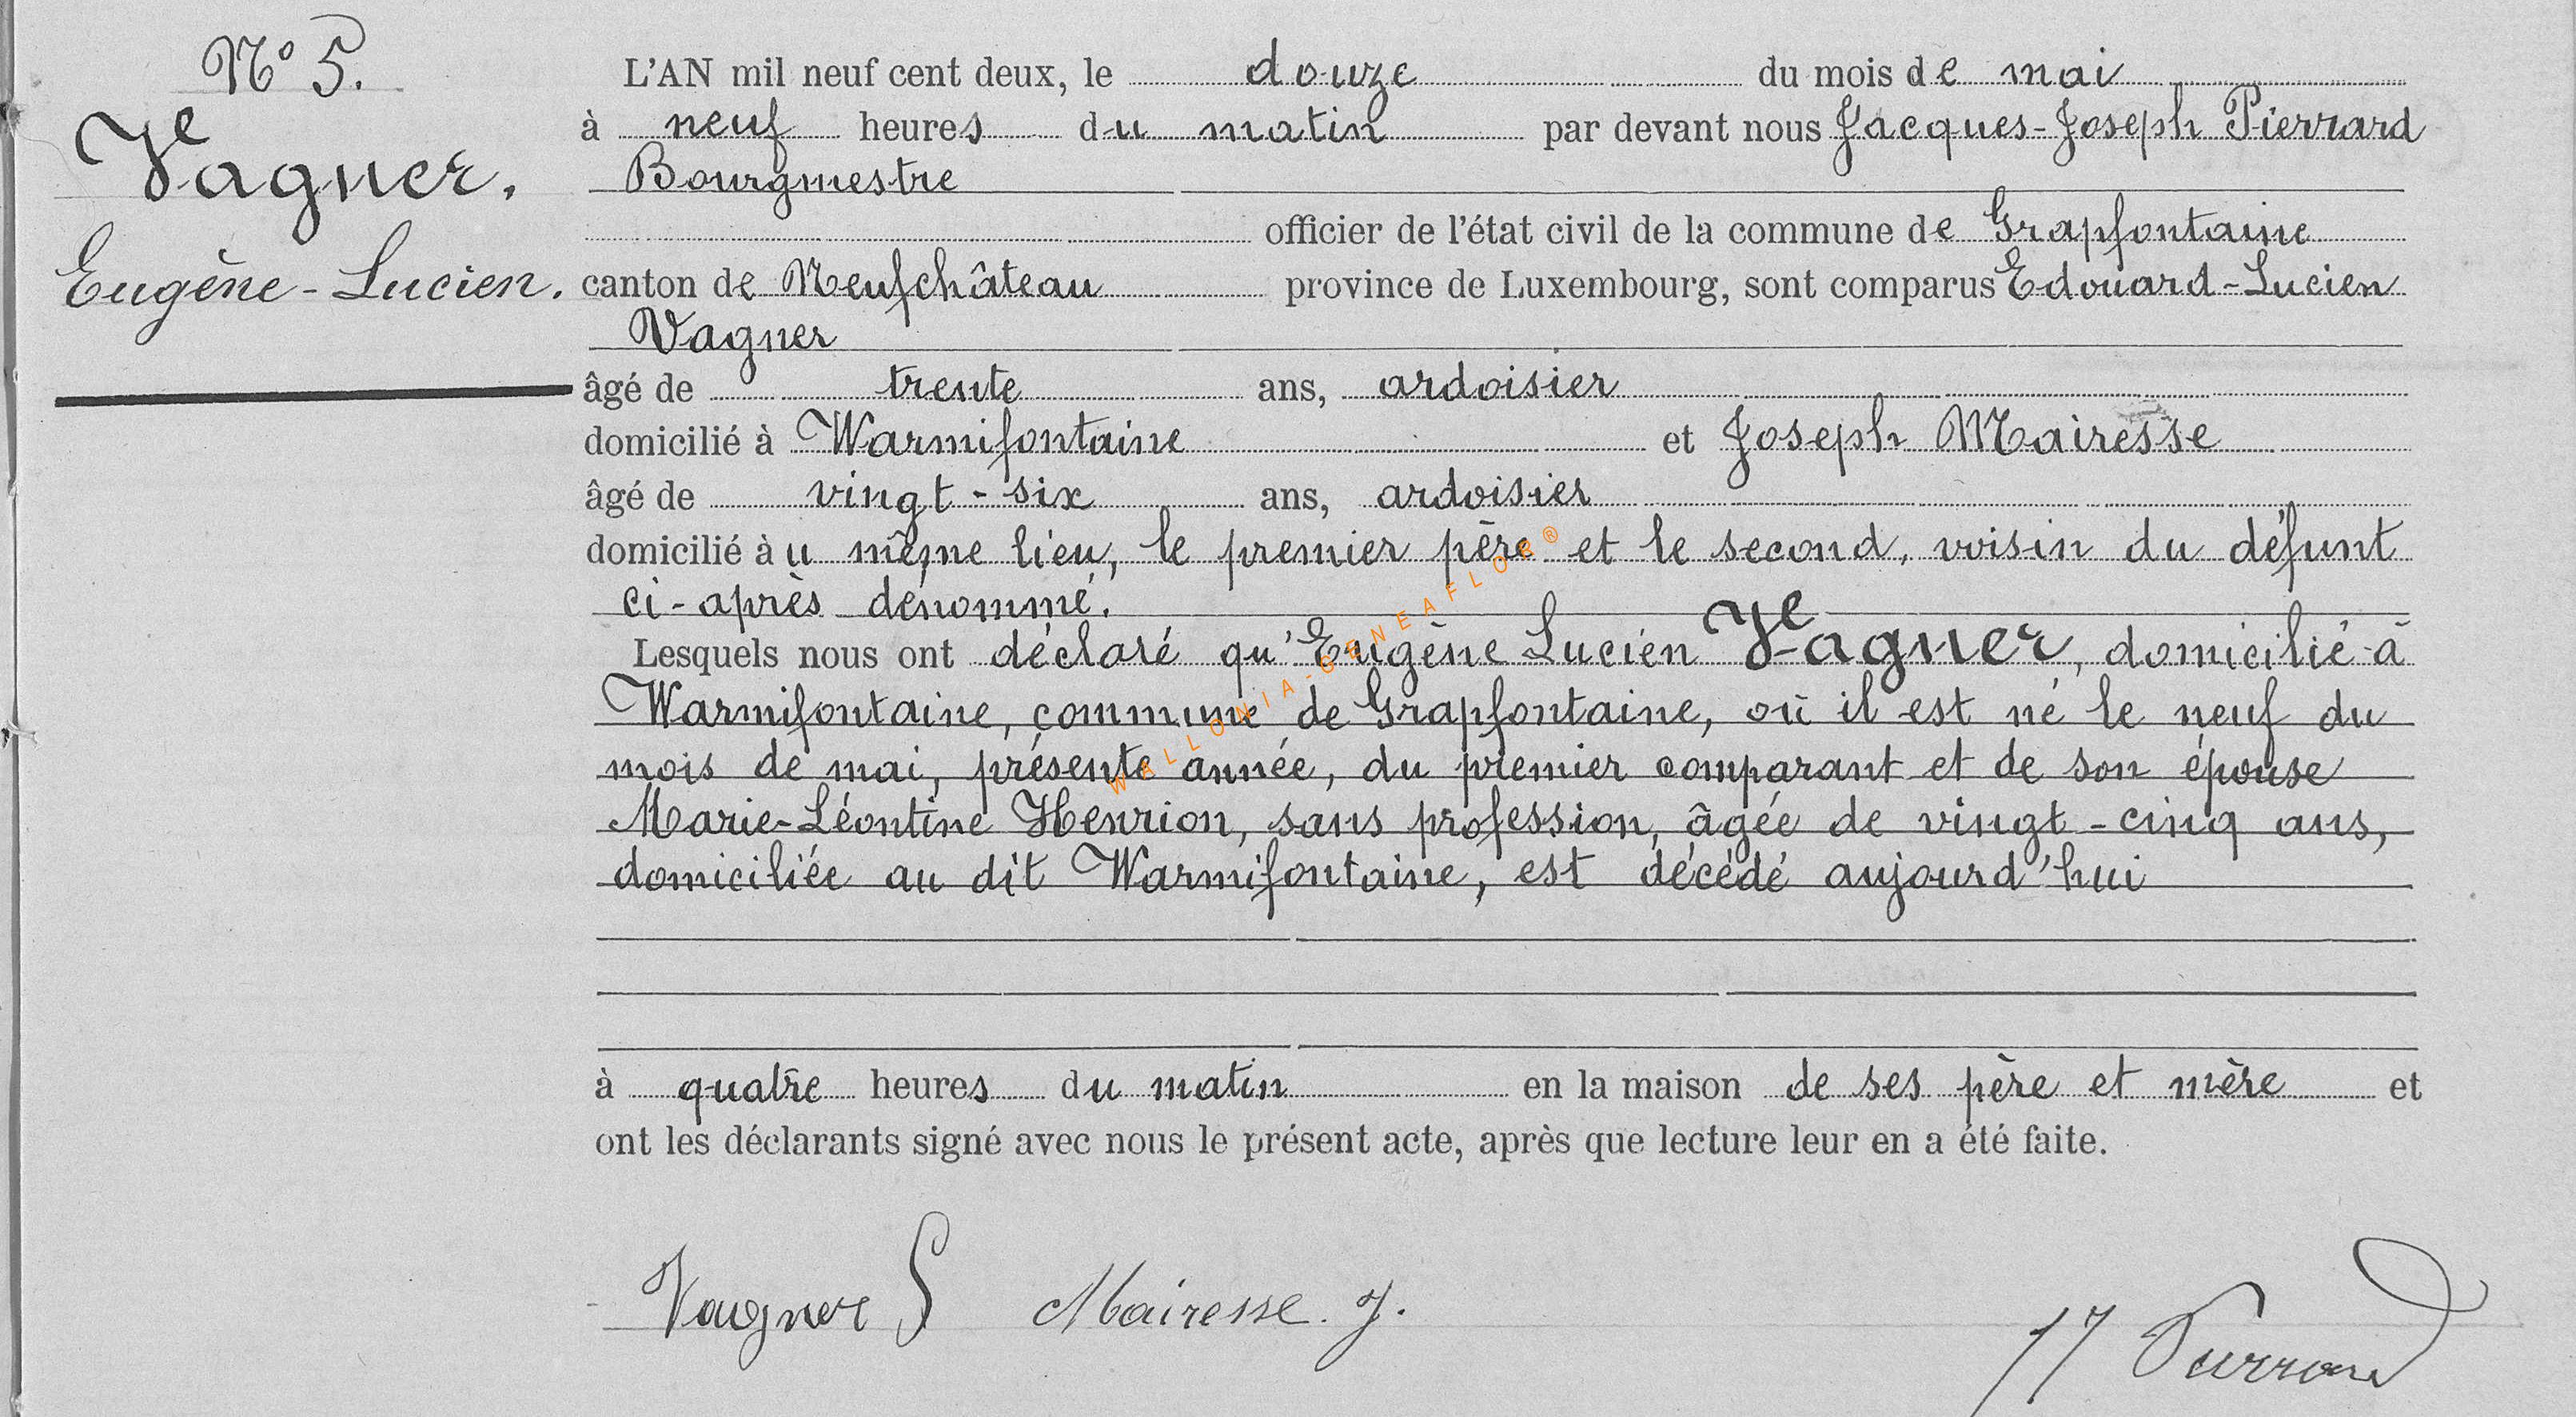 N° 5.
Vagner,
Eugène-Lucien.
L'AN mil neuf cent deux, le douze du mois de mai
à neuf heures du matin par devant nous Jacques-Joseph Pierrard
Bourgmestre
officier de l'état civil de la commune de Grapfontaine
canton de Neufchâteau province de Luxembourg, sont comparus Edouard-Lucien
Vagner
âgé de trente ans, ardoisier
domicilié à Warmifontaine et Joseph Mairesse
âgé de vingt-six ans, ardoisier
domicilié àu même lieu, le premier père et le second, voisin du défunt
ci-après dénommé.
Lesquels nous ont déclaré qu'Eugène Lucien Vagner, domicilié à
Warmifontaine, commune de Grapfontaine, où il est né le neuf du
mois de mai, présente année, du premier comparant et de son épouse
Marie-Léontine Henrion, sans profession, âgée de vingt-cinq ans,
domiciliée au dit Warmifontaine, est décédé aujourd'hui
à quatre heures du matin en la maison de ses père et mère et
ont les déclarants signé avec nous le présent acte, après que lecture leur en a été faite.
Vagner Mairesse. J. Pierrard
WALLONIA-GENEAFLOR®